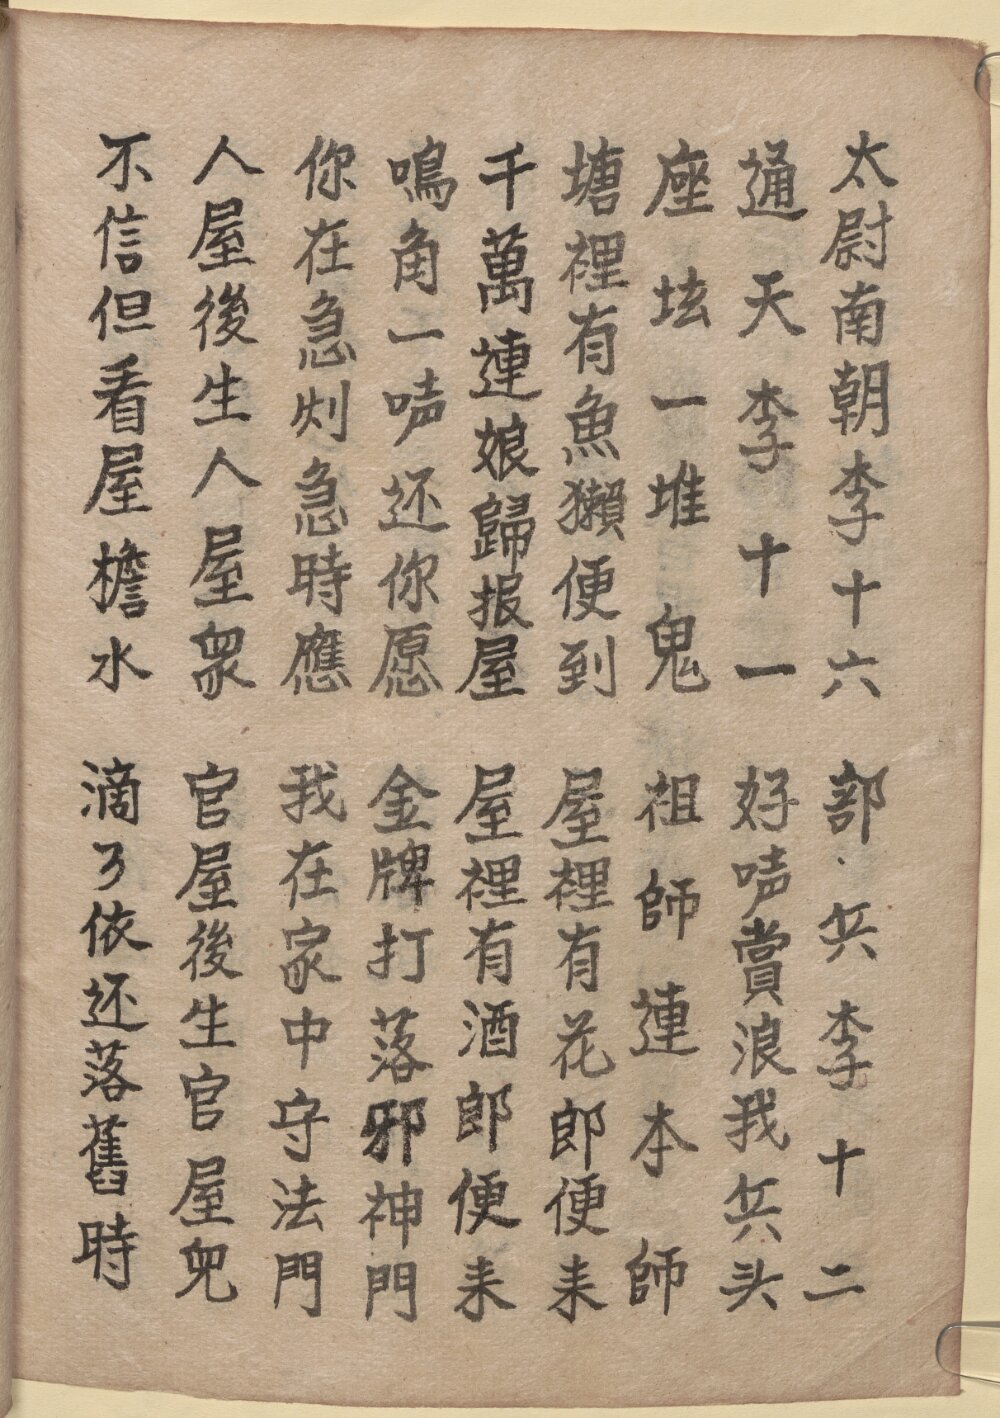 太尉南朝李十六 部兵李十二
通天李十一 好唢賞浪我兵头
座坛一堆鬼 祖師連本師
塘裡有魚獺便到 屋裡有花郎便来
千萬連娘歸报屋 屋裡有酒郎便来
鳴角一唢还你愿 金牌打落邪神門
你在急灼急時應 我在家中守法門
人屋後生人屋眾 官屋後生官屋兜
不信但看屋檐水 滴了依还落舊時